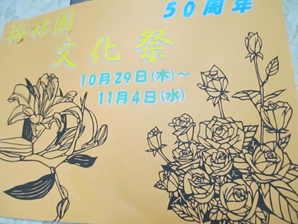 50周年
梅菻園
文化祭
10月29日(木)～
11月4日(水)